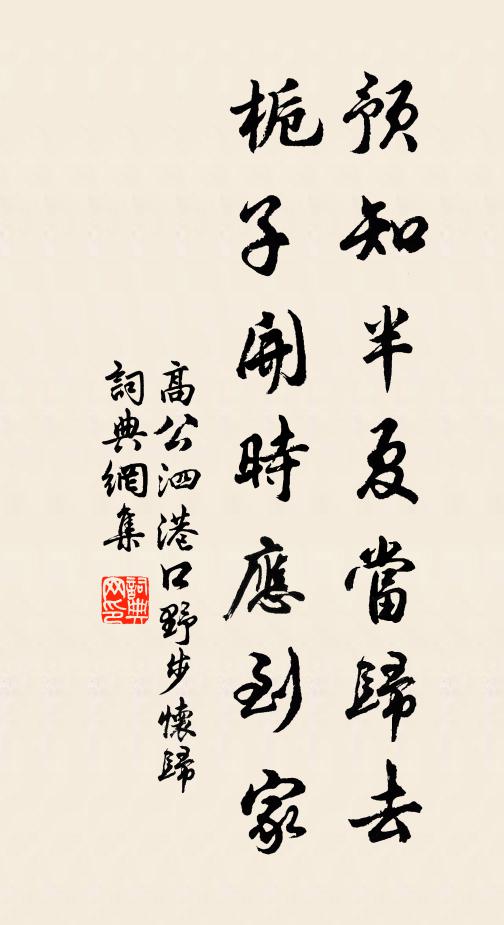 預知半夏當歸去
栀子開時應到家
高公泗港口野步懷歸
詞典網集
詞典网印